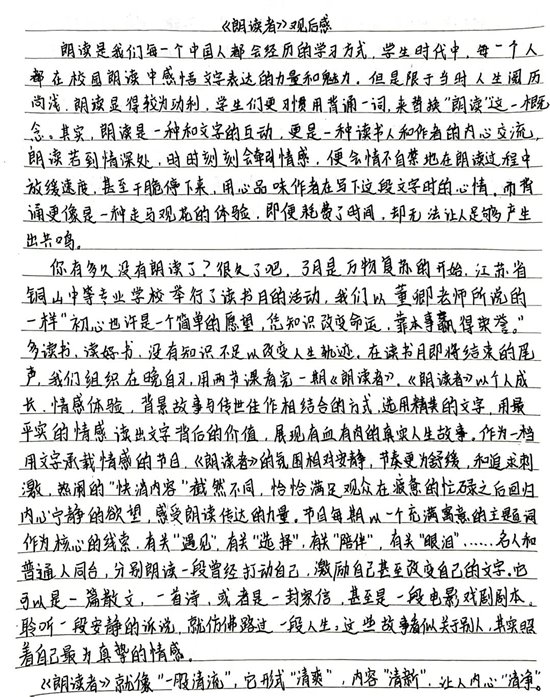 《朗读者》观后感
朗读是我们每一个中国人都会经历的学习方式，学生时代中，每一个人
都在校园朗读中感悟文字表达的力量和魅力。但是限于当时人生阅历
尚浅，朗读显得较为功利，学生们更习惯用背诵一词，来替换“朗读”这一概
念。其实，朗读是一种和文字的互动，更是一种读书人和作者的内心交流，
朗读若到情深处，时时刻刻会牵引情感，便会情不自禁地在朗读过程中
放缓速度，甚至干脆停下来，用心品味作者在写下这段文字时的心情。而背
诵更像是一种走马观花的体验，即便耗费了时间，却无法让人足够产生
出共鸣。
你有多久没有朗读了？很久了吧，3月是万物复苏的开始，江苏省
铜山中等专业学校举行了读书月的活动，我们以董卿老师所说的
一样“初心也许是一个简单的愿望，凭知识改变命运，靠本事赢得荣誉。”
多读书，读好书，没有知识不足以改变人生轨迹。在读书月即将结束的尾
声，我们组织在晚自习，用两节课看完一期《朗读者》。《朗读者》以个人成
长、情感体验、背景故事与传世佳作相结合的方式，选用精美的文字，用最
平实的情感读出文字背后的价值，展现有血有肉的真实人生故事。作为一档
用文字承载情感的节目，《朗读者》的氛围相对安静，节奏更为舒缓，和追求刺
激、热闹的“快消内容”截然不同，恰恰满足观众在疲惫的忙碌之后回归
内心宁静的欲望，感受朗读传达的力量。节目每期以一个充满寓意的主题词
作为核心的线索，有关“遇见”，有关“选择”，有关“陪伴”，有关“眼泪”……名人和
普通人同台，分别朗读一段曾经打动自己，激励自己甚至改变自己的文字。它
可以是一篇散文，一首诗，或者是一封家信，甚至是一段电影戏剧剧本。
聆听一段安静的诉说，就仿佛路过一段人生。这些故事看似关于别人，其实照
着自己最为真挚的情感。
《朗读者》就像“一股清流”，它形式“清爽”，内容“清新”，让人内心“清净”。